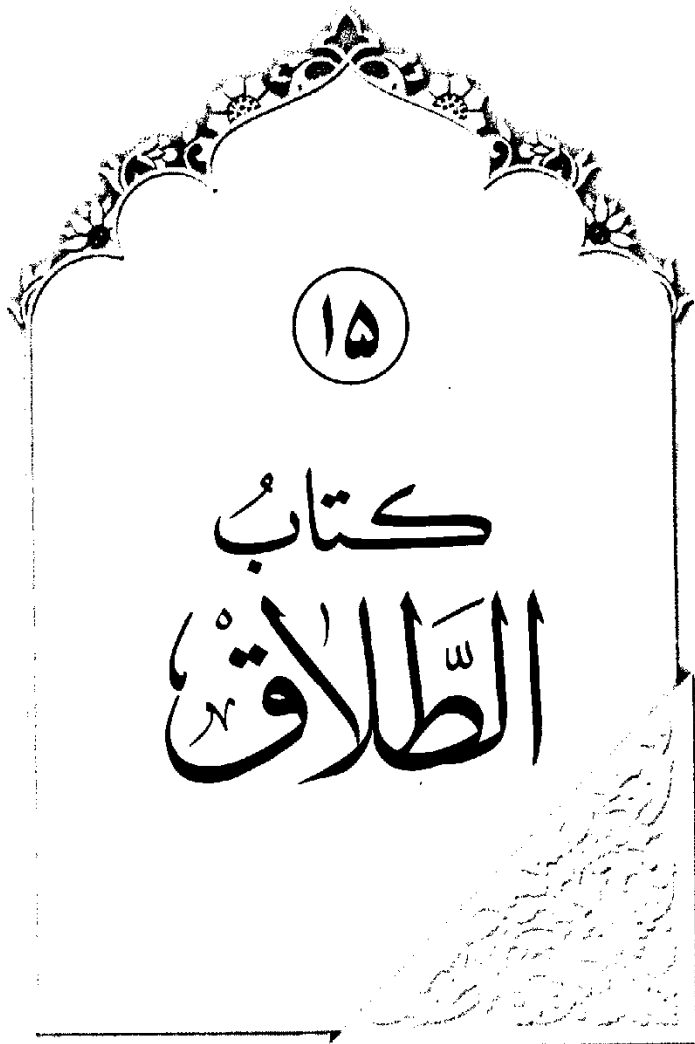 ۱۵
كتابُ
الطَّلاقْ